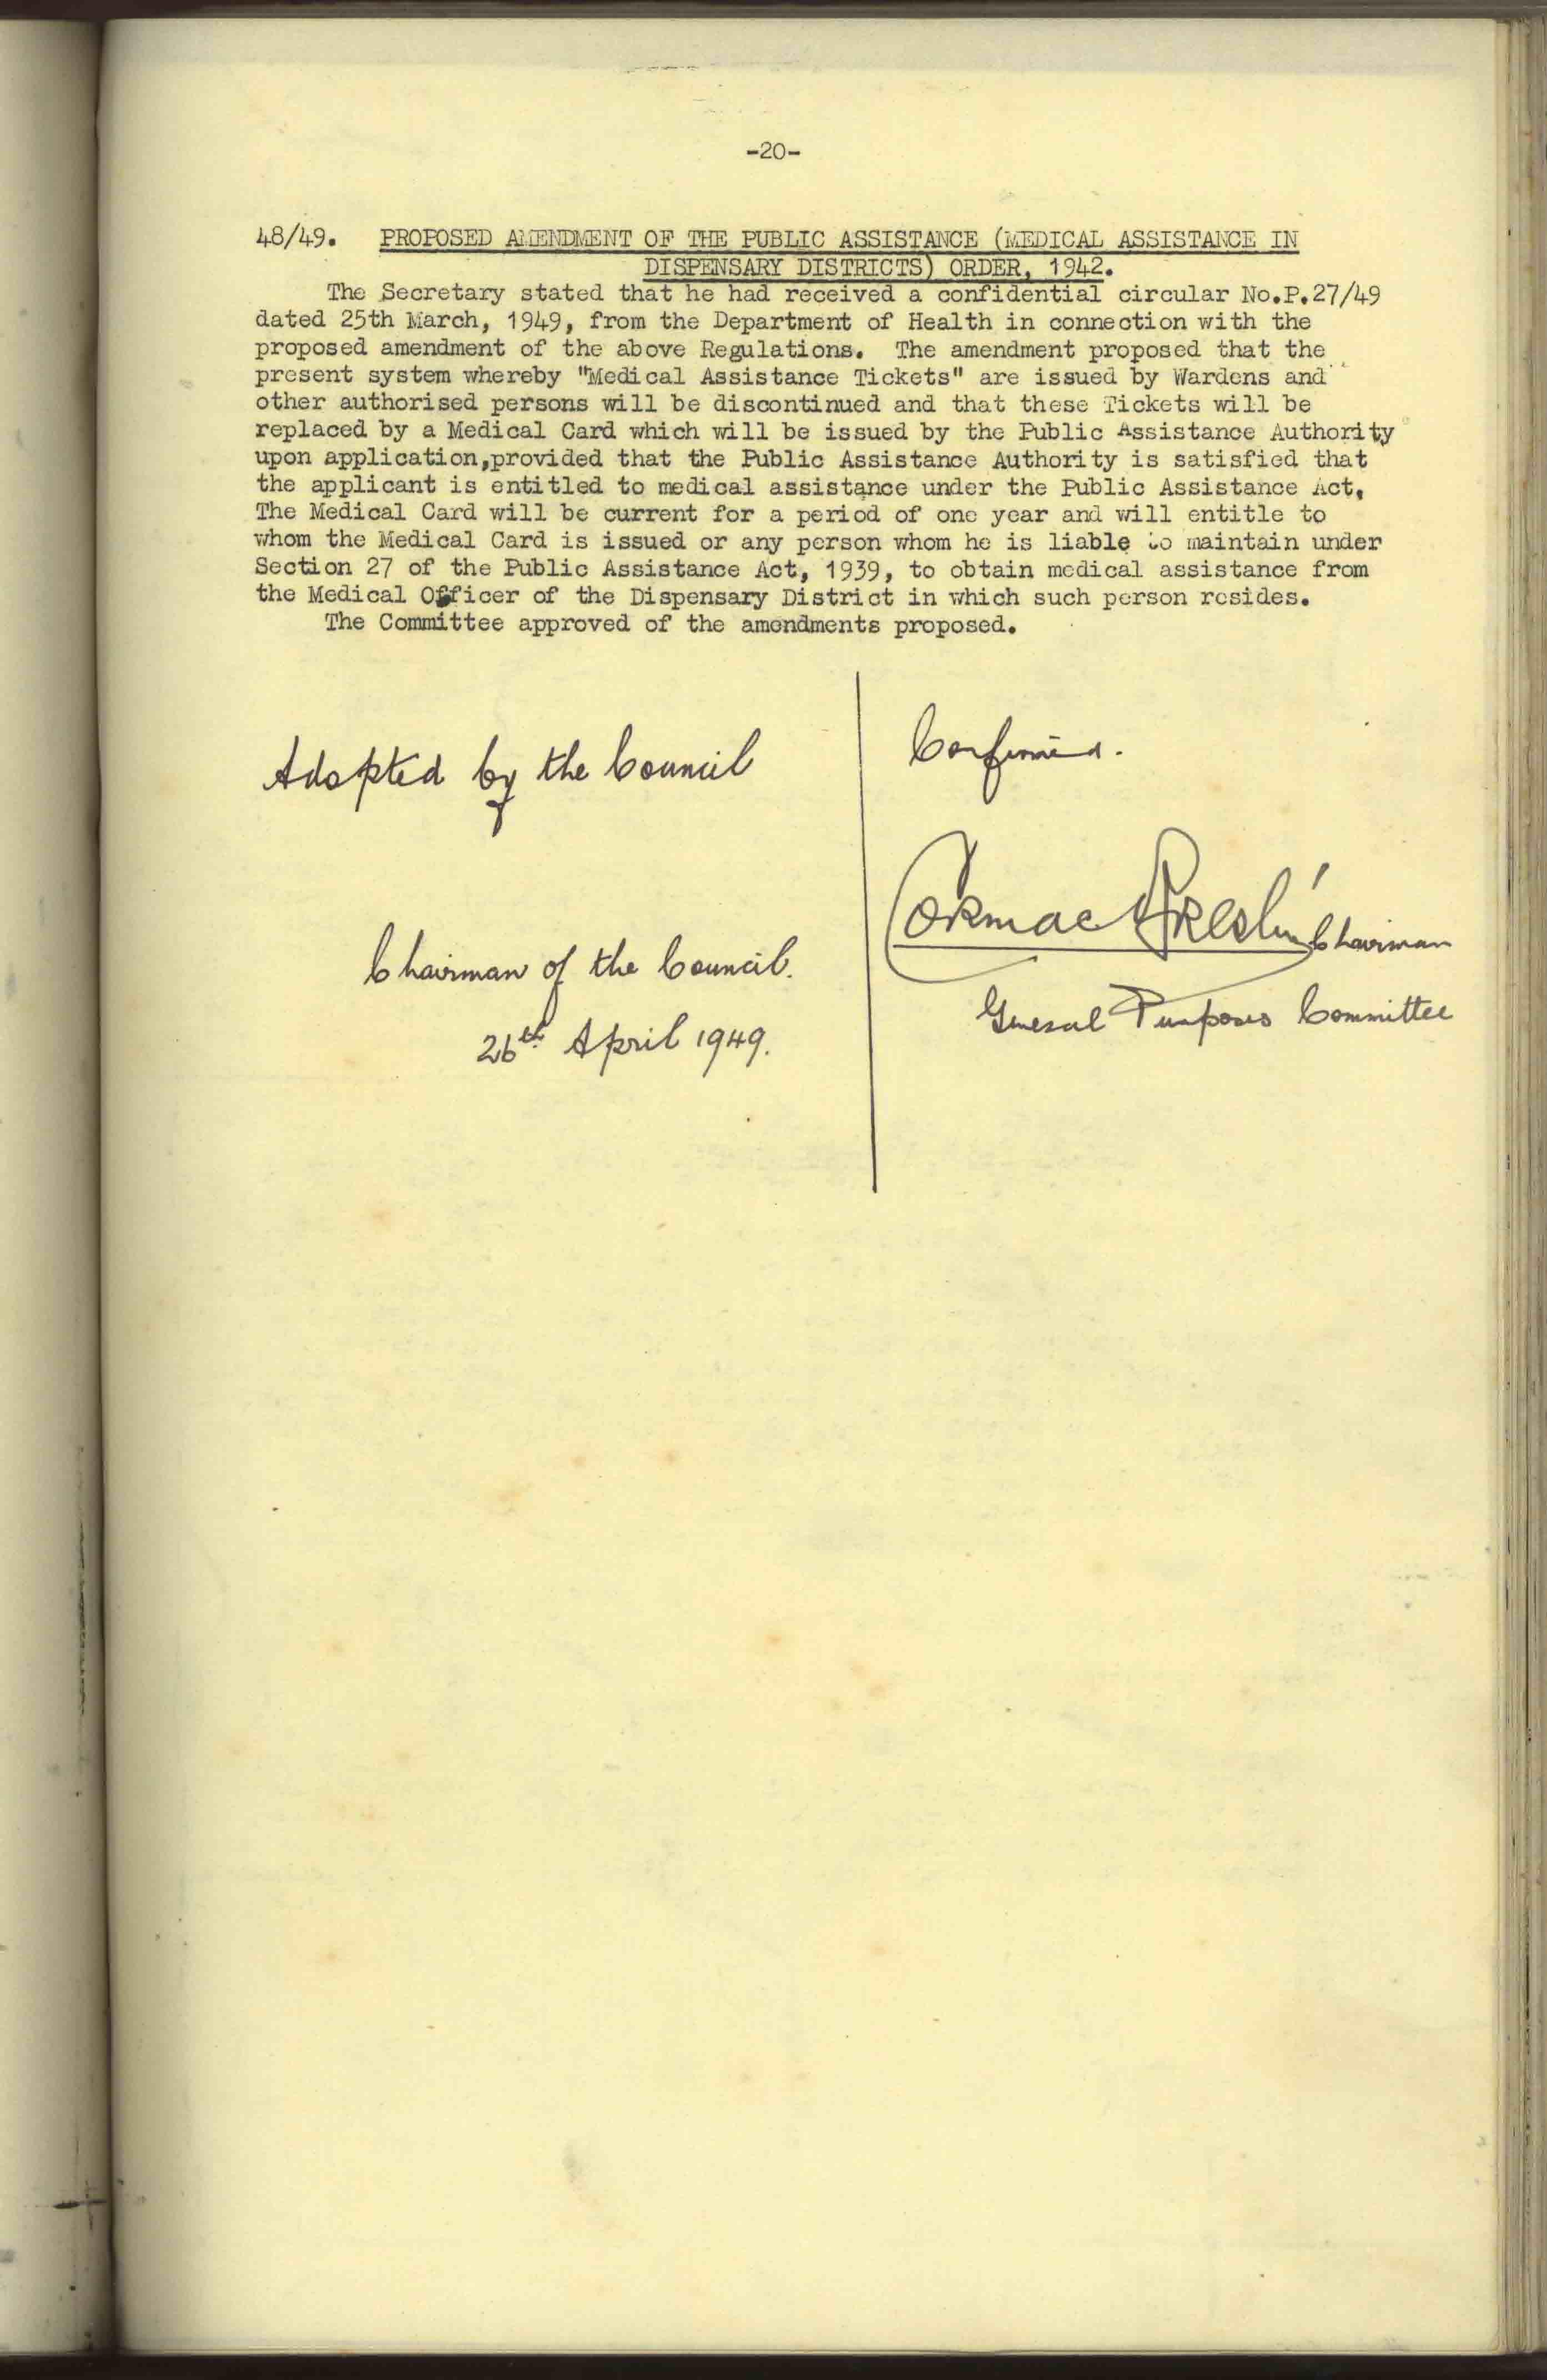 -20-
48/49. PROPOSED AMENDMENT OF THE PUBLIC ASSISTANCE (MEDICAL ASSISTANCE IN
DISPENSARY DISTRICTS) ORDER, 1942.
The Secretary stated that he had received a confidential circular No.P.27/49
dated 25th March, 1949, from the Department of Health in connection with the
proposed amendment of the above Regulations. The amendment proposed that the
present system whereby "Medical Assistance Tickets" are issued by Wardens and
other authorised persons will be discontinued and that these Tickets will be
replaced by a Medical Card which will be issued by the Public Assistance Authority
upon application,provided that the Public Assistance Authority is satisfied that
the applicant is entitled to medical assistance under the Public Assistance Act,
The Medical Card will be current for a period of one year and will entitle to
whom the Medical Card is issued or any person whom he is liable to maintain under
Section 27 of the Public Assistance Act, 1939, to obtain medical assistance from
the Medical Officer of the Dispensary District in which such person resides.
The Committee approved of the amendments proposed.
Adopted by the Council
Chairman of the Council.
26th April 1949.
Confirmed.
Cormac Breslin Chairman
General Purposes Committee